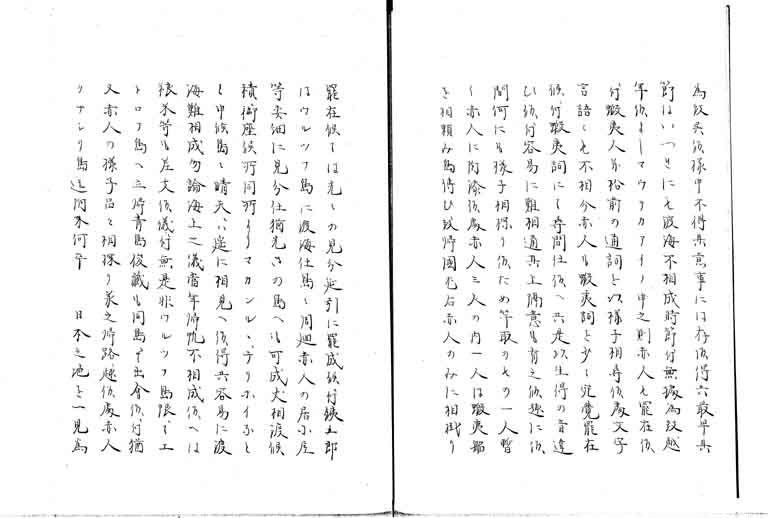 為致呉候様申不得其意事には存候得共最早其
節はいつきにも渡海不相成時節付無據為致越
年候よしマウリカアイノ申之則赤人も罷在候
付蝦夷人弁裕前の通詞を以様子相尋候處文字
言語とも不相分赤人も蝦夷詞を少し宛覚罷在
候付蝦夷詞にて尋問仕候へ共是以生得の音違
ひ候付容易に難相通其上隔意も有之候趣に候
間何にも様子相探り候ため竿取のもの一人暫
く赤人に附添候處赤人三人の内一人は蝦夷船
を相頼み為待ひ致帰國尤右赤人のみに相掛り
罷在候ては先々の見分延引に罷成候付鉄五郎
はウルツフ嶋に渡海仕嶋々周廻赤人の居小屋
等委細に見分仕猶先々の嶋へも可成丈相渡候
積御座候所同所よりマカンルヽヲリホイ等と
申候嶋々晴天には遥に相見へ候得共容易に渡
海難相成勿論海上之儀當年帰帆不相成候へは
粮米等も差支候儀付無是非ウルツフ嶋限にエ
トロフ嶋へ立帰青嶋俊蔵も同嶋にて出會候付猶
又赤人の様子品々相探り莱之帰路越候處赤人
クナシリ嶋迄附来何卒　日本之地を一見為